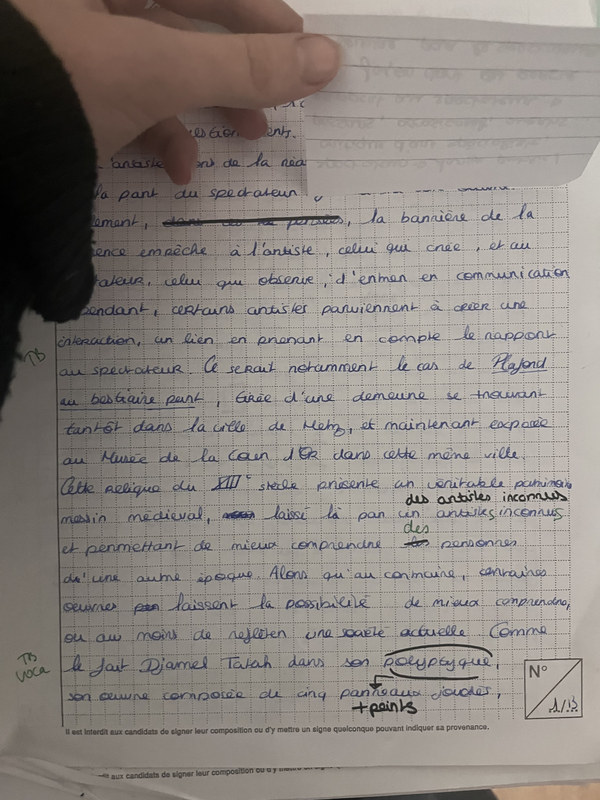 ent de la réa
la part du spectateur
lement, la barrière de la
ence empêche à l'artiste, celui qui crée, et au
ateur, celui qui observe, d'entrer en communication
pendant, certains artistes parviennent à créer une
interaction, un lien en prenant en compte le rapport
TB
au spectateur. Ce serait notamment le cas de Plafond
au bestiaire peint, tirée d'une demeure se trouvant
tantôt dans la ville de Metz, et maintenant exposée
au Musée de la Cour d'Or dans cette même ville.
Cette relique du XIIIe siècle présente un véritable patrimoine
des artistes inconnus
messin médiéval, laissé là par un artistes inconnus
des
et permettant de mieux comprendre les personnes
d'une autre époque. Alors qu'au contraire, certaines
oeuvres laissent la possibilité de mieux comprendre,
ou au moins de refléter une société actuelle. Comme
TB
voca
le fait Djamel Tatah dans son polyptyque,
son oeuvre composée de cinq panneaux joudes,
+ peints
N°
1/13
Il est interdit aux candidats de signer leur composition ou d'y mettre un signe quelconque pouvant indiquer sa provenance.
aux candidats de signer leur composition ou d'y mettre un